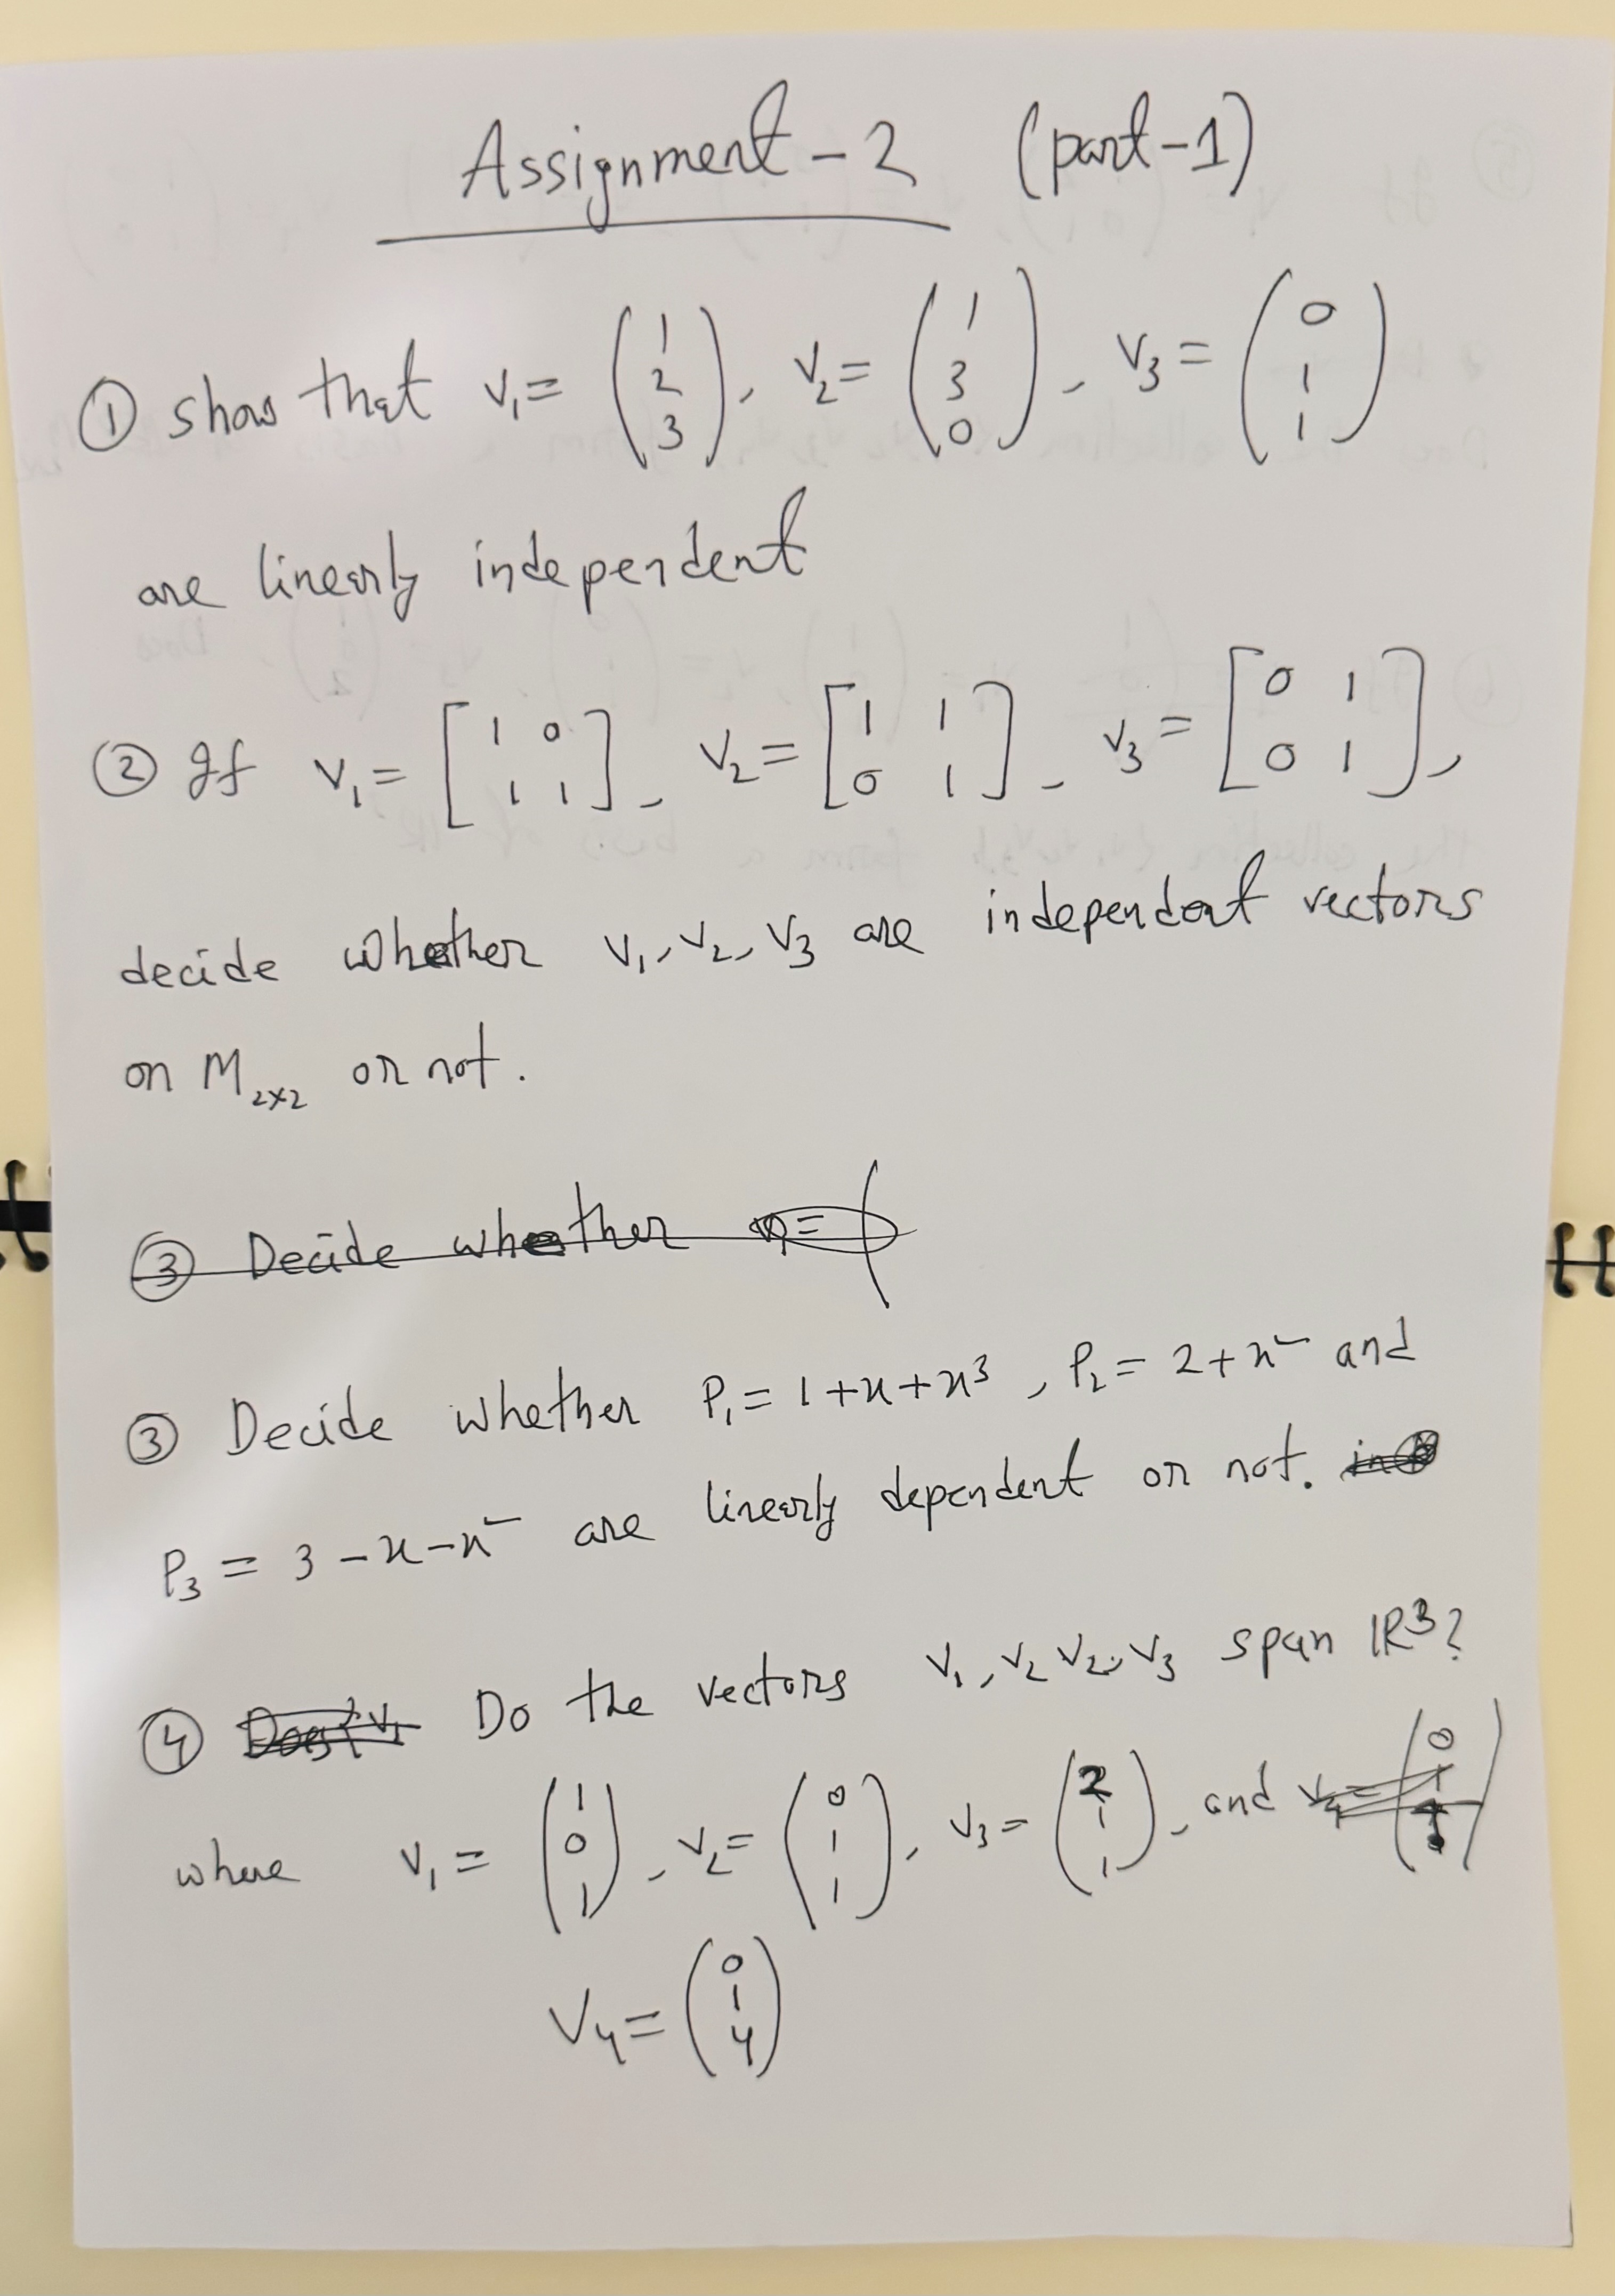 Assignment-2 (part-1)
① show that v₁ = (1 2 3), v₂ = (1 3 0), v₃ = (0 1 1)
are linearly independent
② If v₁ = [1 0 1 1], v₂ = [1 1 0 1], v₃ = [0 1 0 1],
decide whether v₁, v₂, v₃ are independent vectors
on M₂ₓ₂ or not.
③ Decide whether
③ Decide whether P₁ = 1+x+x³, P₂ = 2+x² and
P₃ = 3-x-x² are linearly dependent or not.
④ Do the vectors v₁, v₂ v₂, v₃ span ℝ³?
where v₁ = (1 0 1), v₂ = (0 1 1), v₃ = (2 1 1), and
V₄ = (0 1 4)